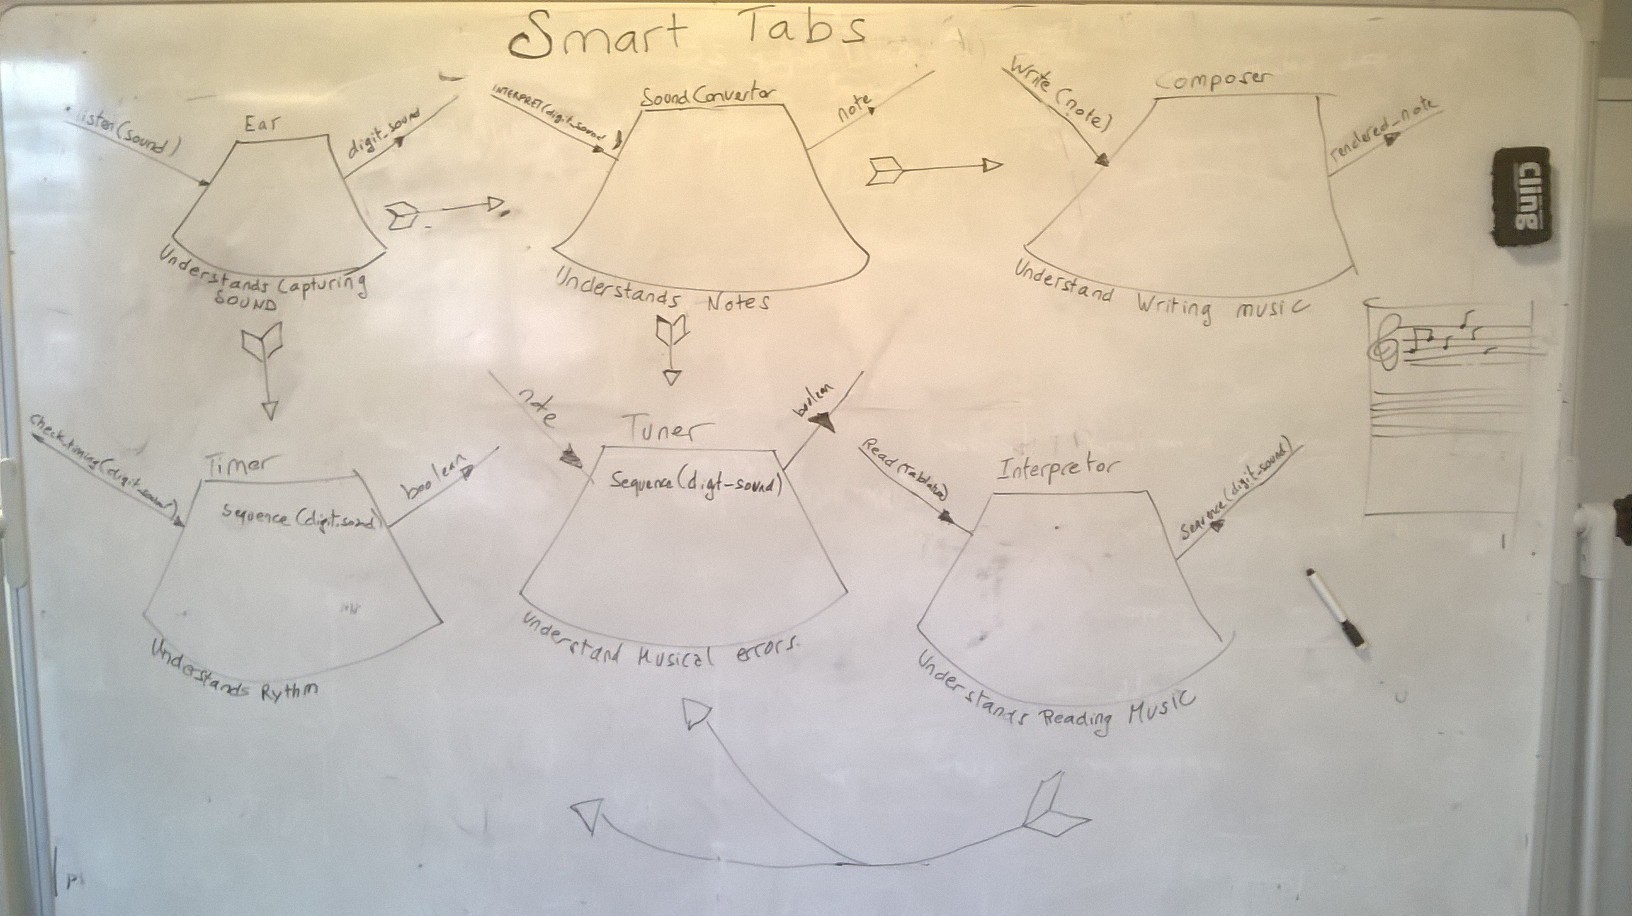 Smart Tabs
listen(sound)
Ear
digit_sound
Understands Capturing
SOUND
INTERPRET(digit_sound)
SoundConvertor
note
Understands Notes
Write(note)
Composer
rendered_note
Understand Writing music
cling
check_timing(digit_sound)
Timer
boolean
Sequence(digit_sound)
Understands Rythm
note
Tuner
boolean
Sequence(digit-sound)
Understand Musical errors.
Interpretor
Sequence(digit_sound)
Understands Reading Music